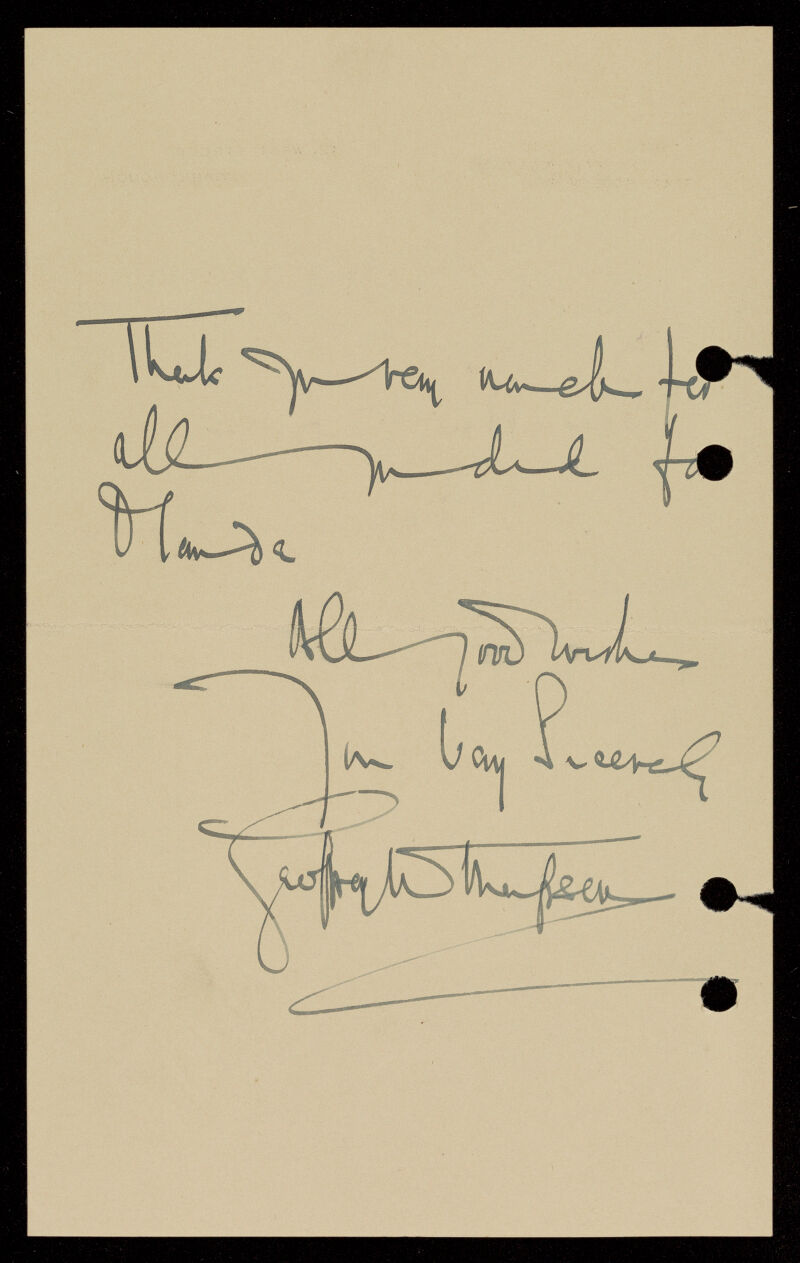 Thank you very much for
all you did for
Maurice
All good wishes
Your very Sincerely
Geoffrey W Thompson